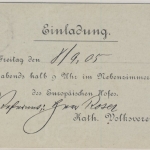 Einladung.
Freitag den 8/9.05
abends halb 9 Uhr im Nebenzimmer
des Europäischen Hofes.
Herr
Kath. Volksverein